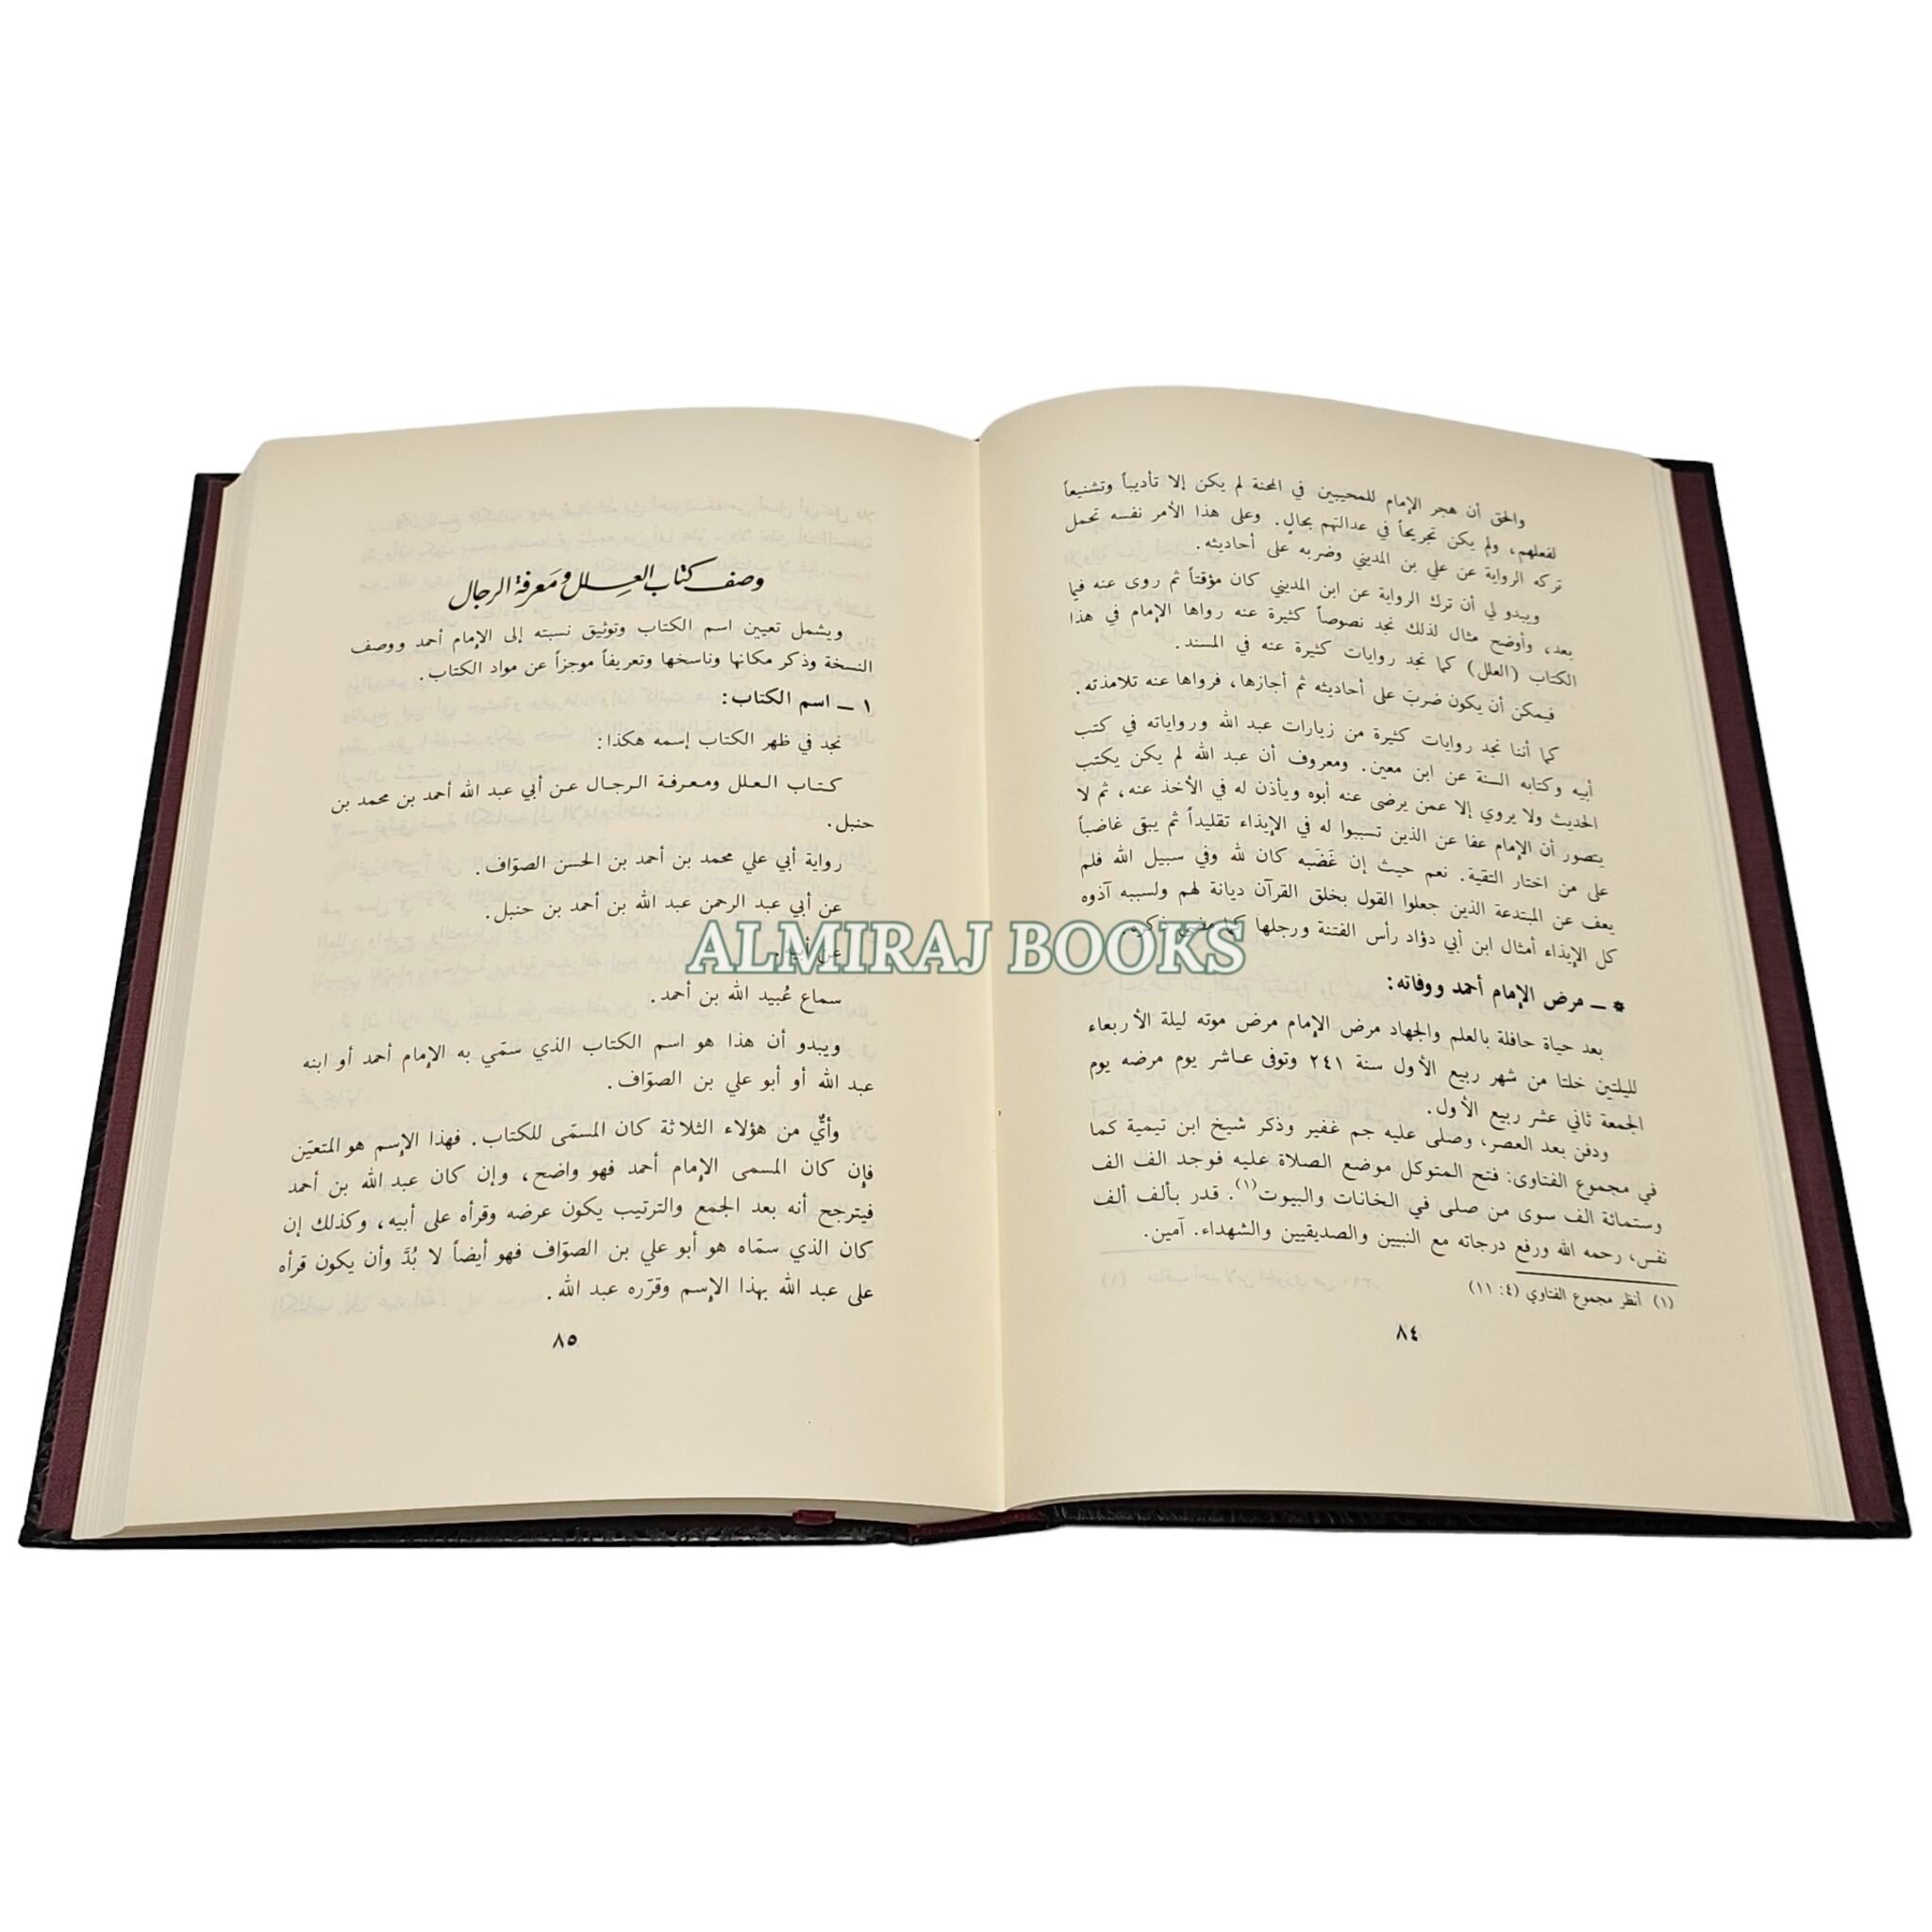 والحق أن هجر الإمام للمجيبين في المحنة لم يكن إلا تأديباً وتشنيعاً
لفعلهم، ولم يكن تجريحاً في عدالتهم بحالٍ. وعلى هذا الأمر نفسه تحمل
تركه الرواية عن علي بن المديني وضربه على أحاديثه.
ويبدو لي أن ترك الرواية عن ابن المديني كان مؤقتاً ثم روى عنه فيما
بعد، وأوضح مثال لذلك نجد نصوصاً كثيرة عنه رواها الإمام في هذا
الكتاب (العلل) كما نجد روايات كثيرة عنه في المسند.
فيمكن أن يكون ضربَ على أحاديثه ثم أجازها، فرواها عنه تلامذته.
كما أننا نجد روايات كثيرة من زيارات عبد الله ورواياته في كتب
أبيه وكتابه السنة عن ابن معين. ومعروف أن عبد الله لم يكن يكتب
الحديث ولا يروي إلا عمن يرضى عنه أبوه ويأذن له في الأخذ عنه، ثم لا
يتصور أن الإمام عفا عن الذين تسببوا له في الإيذاء تقليداً ثم يبقى غاضباً
على من اختار التقية. نعم حيث إن غَضَبه كان لله وفي سبيل الله فلم
يعف عن المبتدعة الذين جعلوا القول بخلق القرآن ديانة لهم ولسببه آذوه
كل الإيذاء أمثال ابن أبي دؤاد رأس الفتنة ورجلها كما مضى ذكره.
* ـ مرض الإمام أحمد ووفاته:
بعد حياة حافلة بالعلم والجهاد مرض الإمام مرض موته ليلة الأربعاء
لليلتين خلتا من شهر ربيع الأول سنة ٢٤١ وتوفى عاشر يوم مرضه يوم
الجمعة ثاني عشر ربيع الأول.
ودفن بعد العصر، وصلى عليه جم غفير وذكر شيخ ابن تيمية كما
في مجموع الفتاوى: فتح المتوكل موضع الصلاة عليه فوجد الف الف
وستمائة الف سوى من صلى في الخانات والبيوت(١). قدر بألف ألف
نفس، رحمه الله ورفع درجاته مع النبيين والصديقيين والشهداء. آمين.
(١) أنظر مجموع الفتاوي (٤: ١١)
٨٤
وصف كتاب العلل ومعرفة الرجال
ويشمل تعيين اسم الكتاب وتوثيق نسبته إلى الإمام أحمد ووصف
النسخة وذكر مكانها وناسخها وتعريفاً موجزاً عن مواد الكتاب.
١ ـ اسم الكتاب:
نجد في ظهر الكتاب إسمه هكذا:
كتاب العلل ومعرفة الرجال عن أبي عبد الله أحمد بن محمد بن
حنبل.
رواية أبي علي محمد بن أحمد بن الحسن الصوّاف.
عن أبي عبد الرحمن عبد الله بن أحمد بن حنبل.
عن أبيه.
سماع عُبيد الله بن أحمد.
ويبدو أن هذا هو اسم الكتاب الذي سمّي به الإمام أحمد أو ابنه
عبد الله أو أبو علي بن الصوّاف.
وأيٌّ من هؤلاء الثلاثة كان المسمّى للكتاب. فهذا الإسم هو المتعيّن
فإن كان المسمى الإمام أحمد فهو واضح، وإن كان عبد الله بن أحمد
فيترجح أنه بعد الجمع والترتيب يكون عرضه وقرأه على أبيه، وكذلك إن
كان الذي سمّاه هو أبو علي بن الصوّاف فهو أيضاً لا بُدَّ وأن يكون قرأه
على عبد الله بهذا الإسم وقرّره عبد الله.
٨٥
ALMIRAJ BOOKS